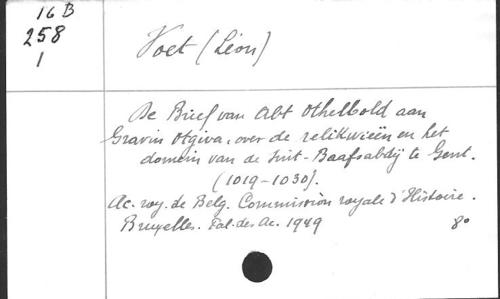 16 B
258
1
Voet (Léon)
De Brief van Abt Othelbold aan
Gravin Otgiva, over de relikwieën en het
domein van de Sint-Baafsabdij te Gent.
(1019-1030).
Ac. roy. de Belg. Commission royale d'Histoire.
Bruxelles. Pal. des Ac. 1949
8°